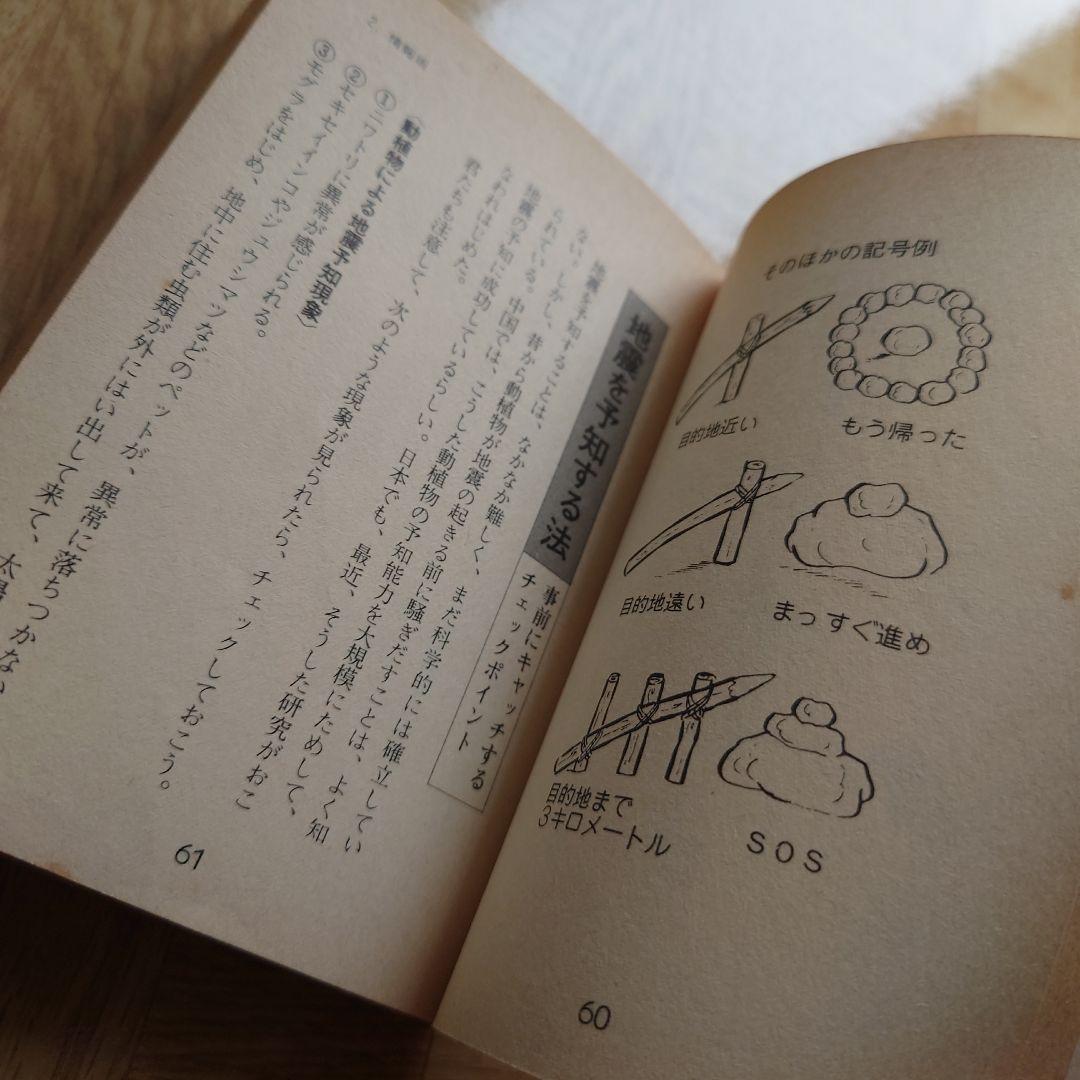 そのほかの記号例
目的地近い
もう帰った
目的地遠い
まっすぐ進め
目的地まで
3キロメートル
SOS
60
2 情報術
地震を予知する法
事前にキャッチする
チェックポイント
地震を予知することは、なかなか難しく、まだ科学的には確立してい
ない。しかし、昔から動植物が地震の起きる前に騒ぎだすことは、よく知
られている。中国では、こうした動植物の予知能力を大規模にためして、
地震の予知に成功しているらしい。日本でも、最近、そうした研究がおこ
なわれはじめた。
君たちも注意して、次のような現象が見られたら、チェックしておこう。
〈動植物による地震予知現象〉
①ニワトリに異常が感じられる。
②セキセイインコやジュウシマツなどのペットが、異常に落ちつかない
③モグラをはじめ、地中に住む虫類が外にはい出して来て、太
61